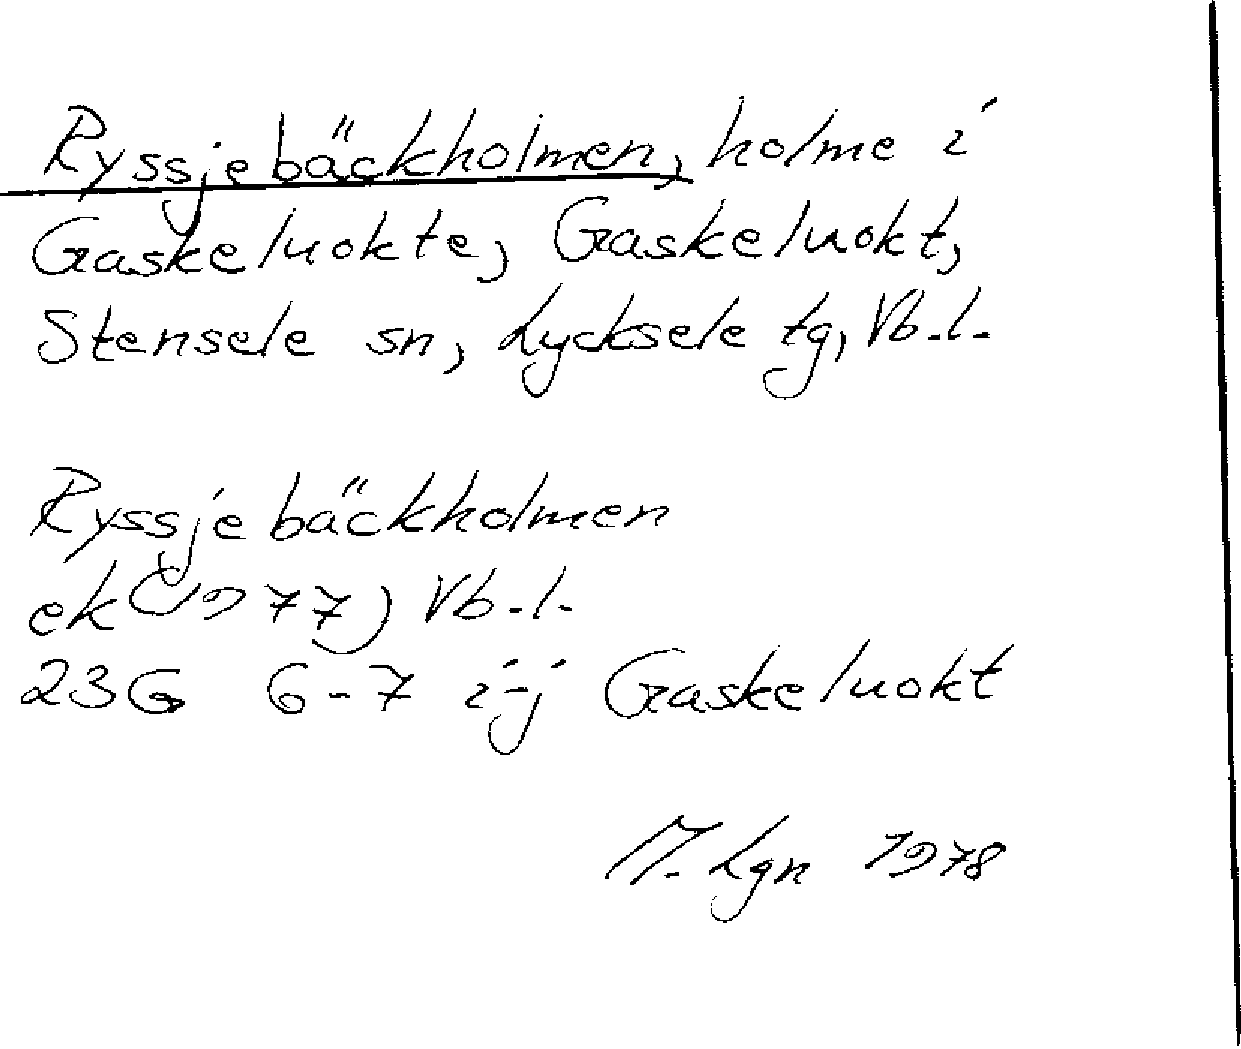 Ryssjebäckholmen, holme i
Gaskeluokte, Gaskeluokt,
Stensele sn, Lycksele tg, Vb.l.
Ryssjebäckholmen
ek (1977) Vb.l.
23G 6-7 i-j Gaskeluokt
M. Lgn 1978